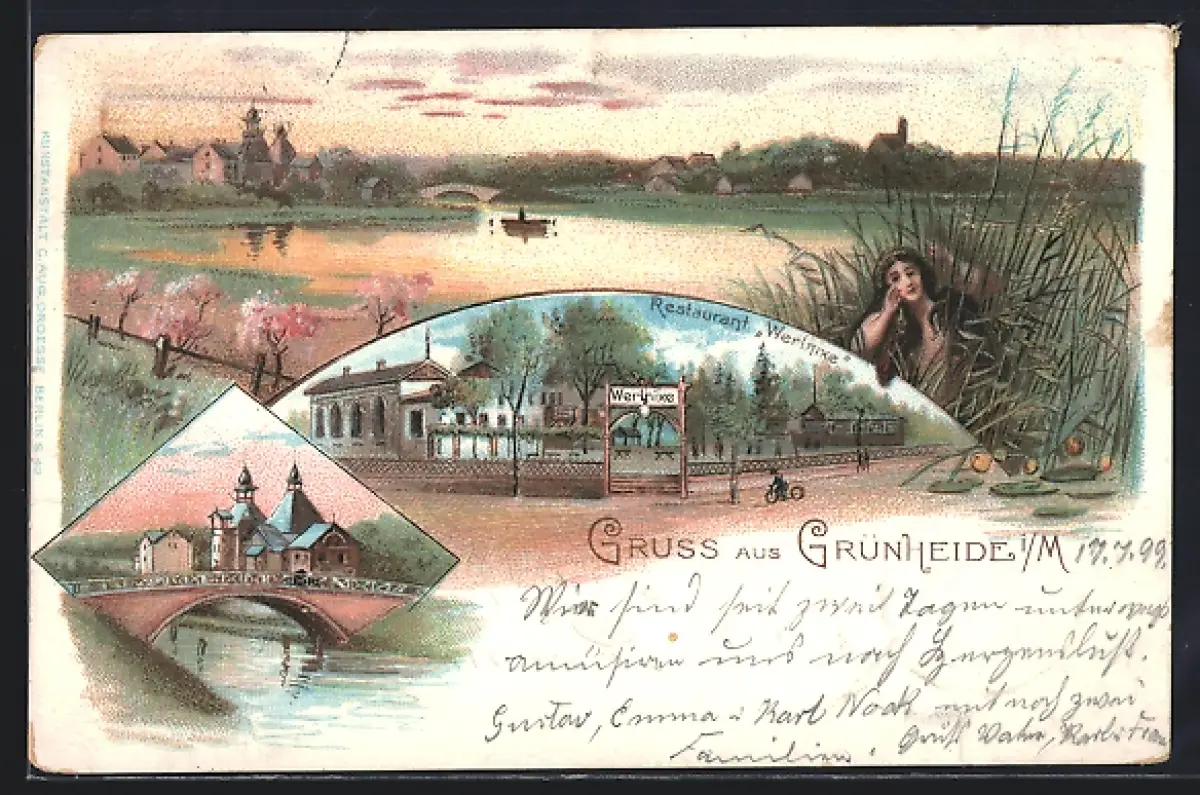 KUNSTANSTALT C. AUG. CROESSE, BERLIN S. 42
Restaurant „Werlnixe“
Werlnixe
GRUSS AUS GRÜNHEIDE i/M 17.7.99.
Wir sind seit zwei Tagen unterwegs
amüsiren uns nach Herzenslust.
Gustav, Emma u Karl Nock mit noch zwei
Familien. Gruß Vater, Karl u Frau